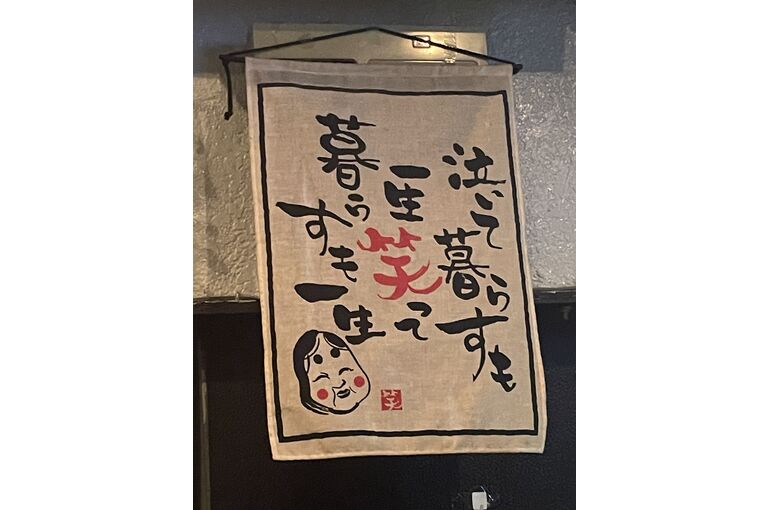 泣いて暮らすも
一生笑って
暮らすも一生
笑